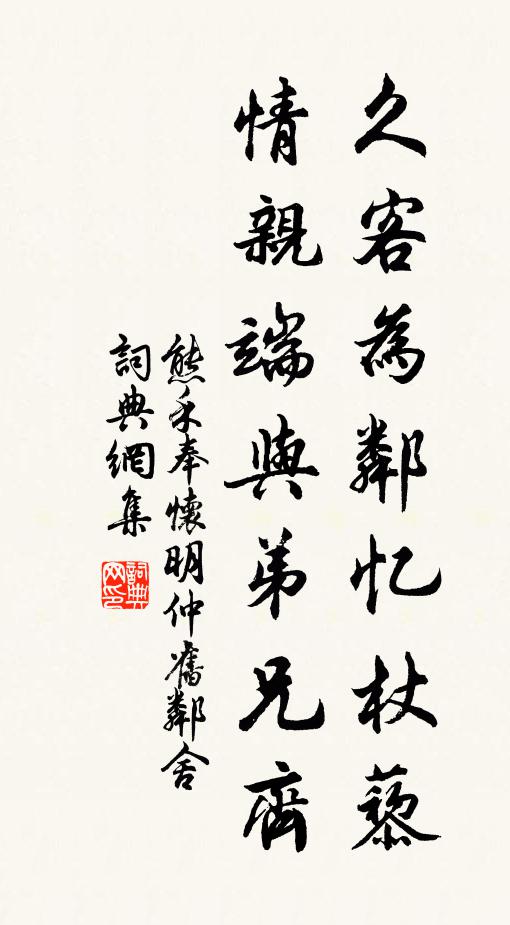 久客為鄰忆杖藜
情親端與弟兄齊
熊禾奉懷明仲舊鄰舍
詞典網集
詞典
网印